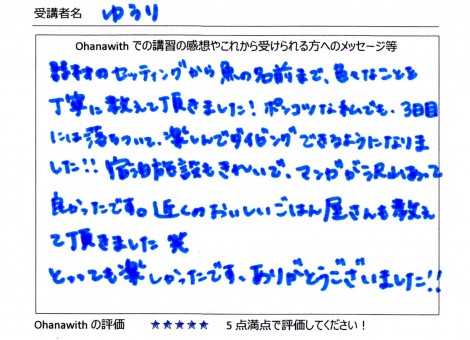 受講者名 ゆうり
Ohanawith での講習の感想やこれから受けられる方へのメッセージ等
器材のセッティングから魚の名前まで、色々なことを
丁寧に教えて頂きました！ポンコツな私でも、3日目
には落ちついて、楽しんでダイビングできるようになりま
した!! 宿泊施設もきれいで、マンガが沢山あって
良かったです。近くのおいしいごはん屋さんも教え
て頂きました 笑
とっっても楽しかったです、ありがとうございました!!
Ohanawith の評価 ★★★★★ 5 点満点で評価してください！